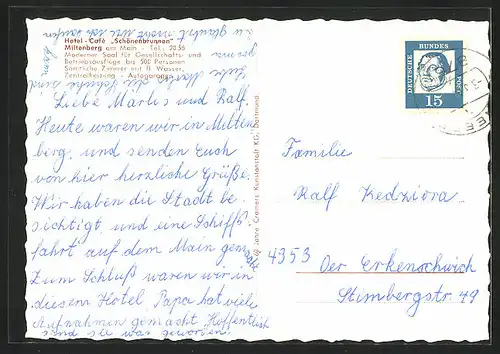 Hotel - Café „Schönenbrunnen"
Miltenberg am Main - Tel.: 2036
Moderner Saal für Gesellschafts- und
Betriebsausflüge bis 500 Personen
Sämtliche Zimmer mit fl. Wasser,
Zentralheizung - Autogaragen
Liebe Marlis und Ralf,
Heute waren wir in Milten
berg, und senden Euch
von hier herzliche Grüße.
Wir haben die Stadt be
sichtigt, und eine Schiffs
fahrt auf dem Main gemacht
Zum Schluß waren wir in
diesem Hotel, Papa hat viele
Aufnahmen gemacht Hoffentlich
sind sie was geworden.
Cramers Kunstanstalt KG, Dortmund
DEUTSCHE BUNDESPOST
15
Familie
Ralf Kedziora
4353 Oer Erkenschwick
Stimbergstr. 49